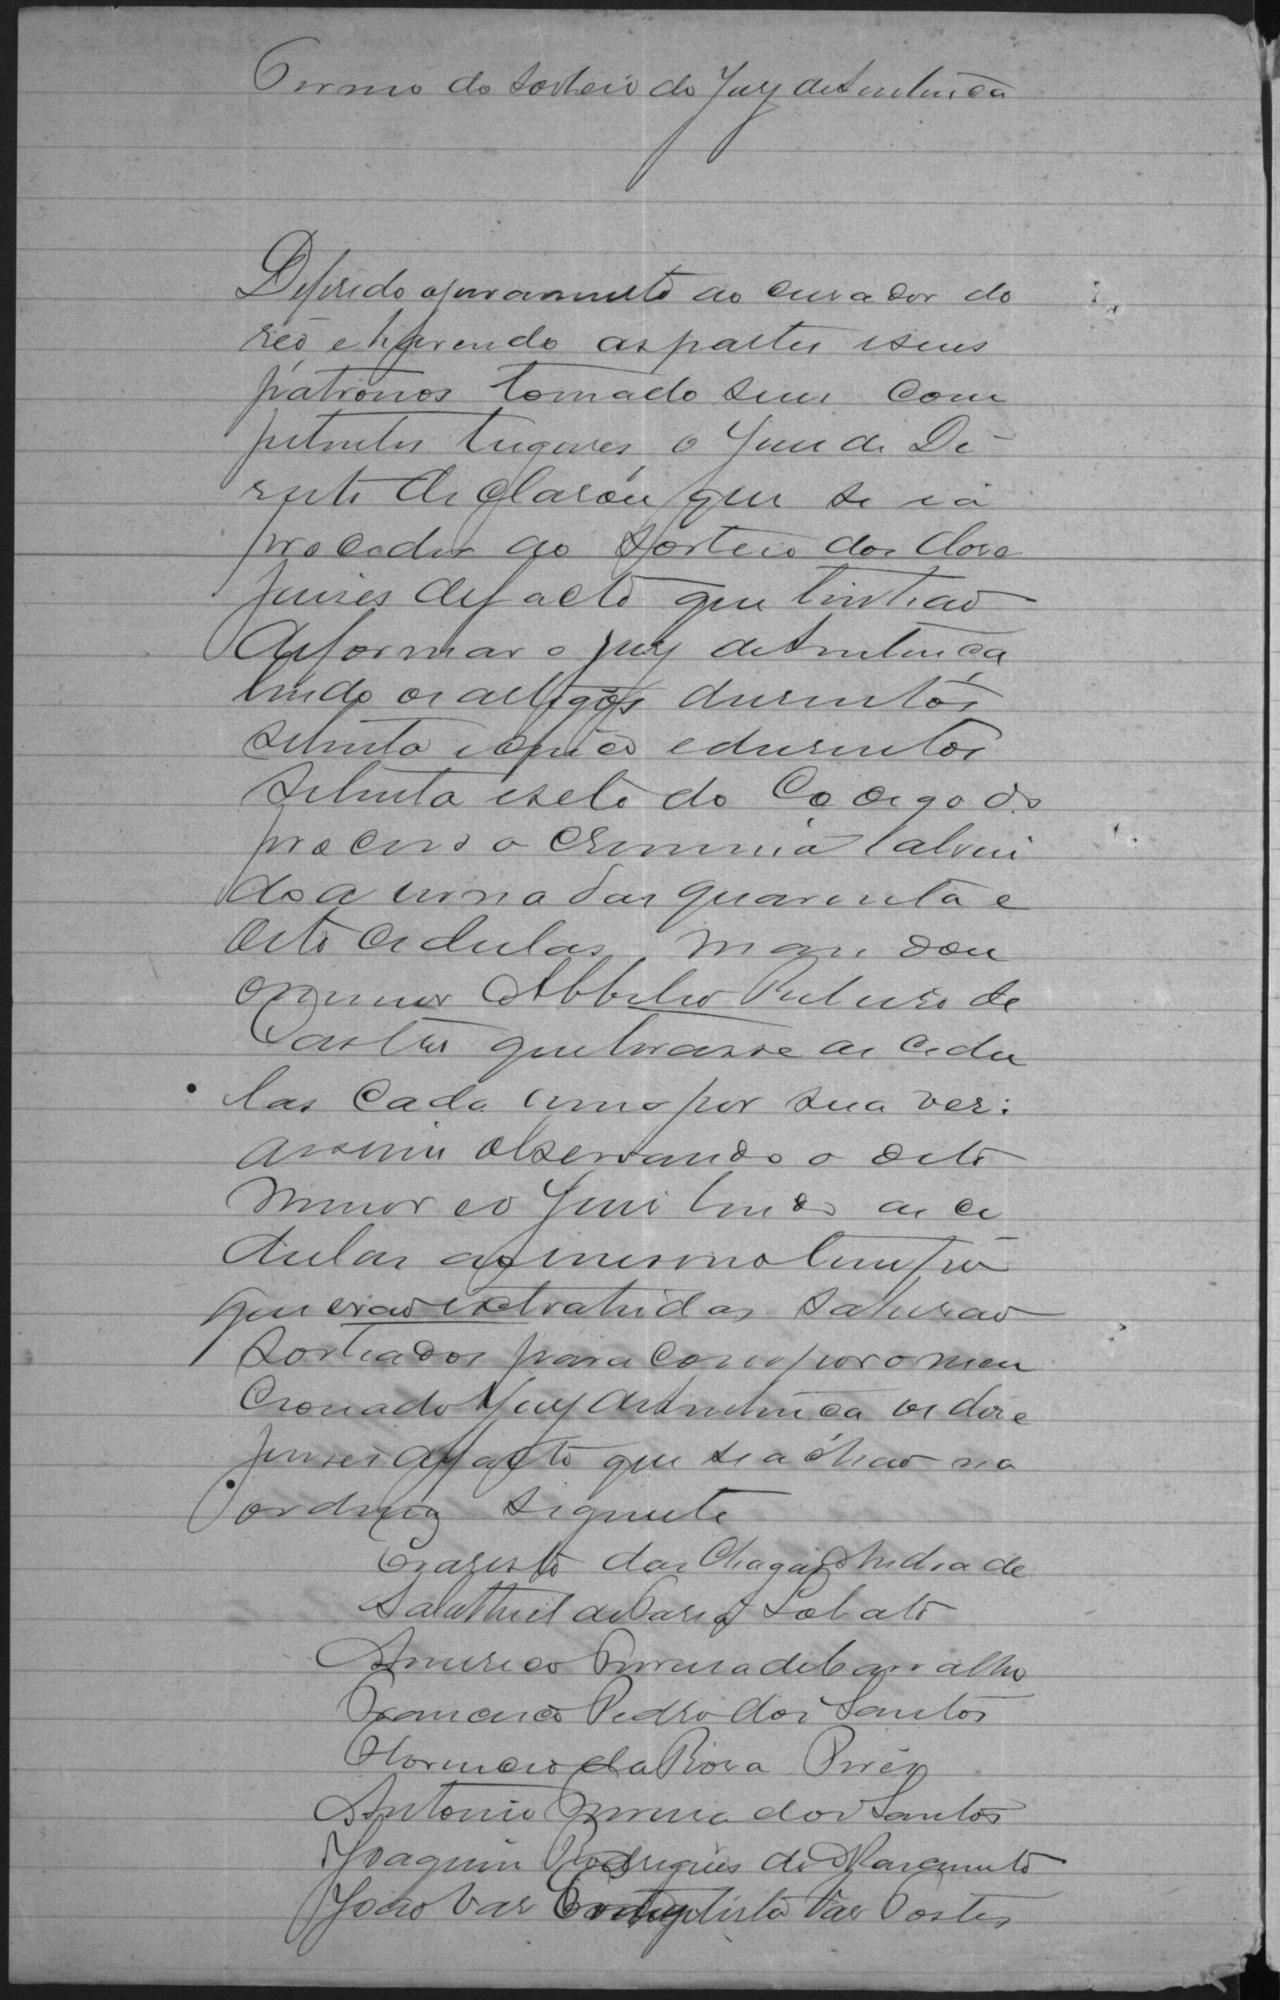 Termo do sorteio do Jury de Sentença
Deferido o juramento ao curador do
réo, e havendo as partes e seus
patronos tomado seus com
petentes lugares, o Juiz de Di
reito declarou que se ia
proceder ao sorteio dos dose
juises de facto que tinhão
de formar o jury de Sentença
lendo os artigos dusentos
setenta e cinco e dusentos
setenta e sete do Codigo do
processo Criminal abrin
do a urna das quarenta e
oito cedulas, mandou
o menor Abbilio Ribeiro de
Castro que tirasse as cedu
las cada uma por sua ves:
assim observando o dito
menor e o Juis lendo as ce
dulas ao mesmo tempo
que erão extrahidas sahirão
sorteados para compor o men
cionado Jury de Sentença os dose
juises de facto que se achão na
ordem seguinte
Evaristo das Chagas Andrade
Salathiel de Faria Lobato
Americo Ferreira de Carvalho
Francisco Pedro dos Santos
da Rosa Pires
Antonio Ferreira dos Santos
Joaquim Rodrigues do Nascimento
João Vas Baptista Vas Tostes